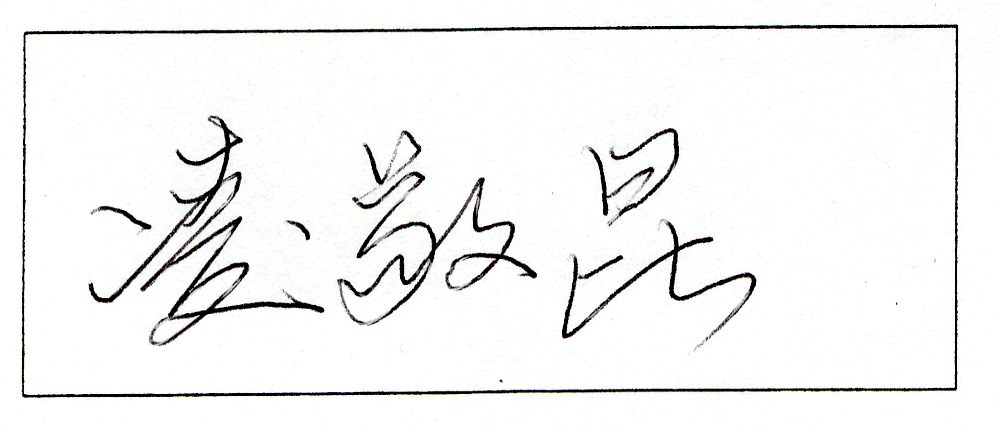 凌敬昆